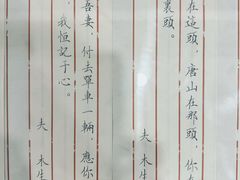 在這頭，唐山在那頭，你在
裏頭。
夫 木生
吾妻，付去單車一輛 應你
，我恒記于心。
夫 木生